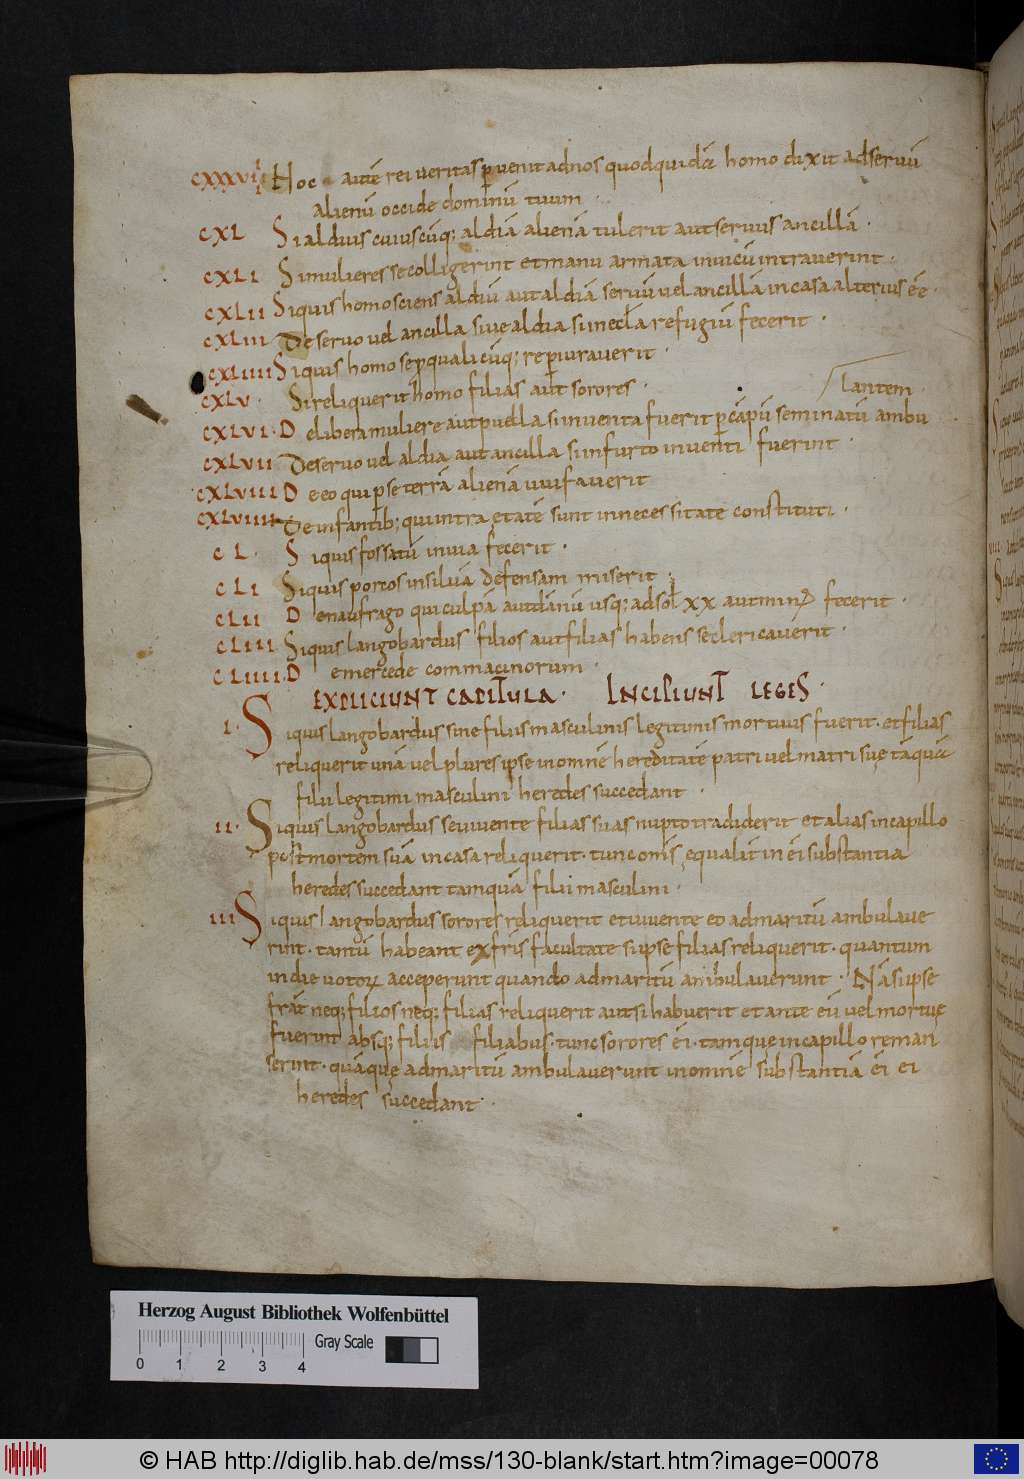 CXXXVIII Hoc autē rei veritas p̱venit ad nos quod quidā homo dixit ad servū
alienū occide dominū tuum
CXL Si aldius cuiuscūq; aldiā alienā tulerit aut servus ancillā .
CXLI Si mulieres se colligerint et manu armata in vicū intraverint .
CXLII Siquis homo sciens aldiū aut aldiā servū vel ancillā in casa alterius ēē .
CXLIII De servo vel ancilla sive aldia si in ecl̄a refugiū fecerit .
CXLIIII Siquis homo se p̱ qualicūq; re p̱iuraverit .
CXLV . Si reliquerit homo filias aut sorores .
lantem
CXLVI . De libera muliere aut puella si inventa fuerit p̱ cāpū seminatū ambu
CXLVII De servo vel aldia aut ancilla si in furto inventi fuerint .
CXLVIII De eo qui p̱ se terrā alienā vvifaverit
CXLVIIII De infantib; qui intra ętatē sunt in necessitate constituti .
CL . Siquis fossatū in via fecerit .
CLI Siquis porcos in silva defensam miserit .
CLII De naufrago qui culpā aut dānū usq; ad sol̄ XX aut minꝰ fecerit .
CLIII Siquis langobardus filios aut filias habens se clericaverit .
CLIIII . De mercede commacinorum .
EXPLICIUNT CAPITULA . INCIPIUNT LEGES .
I . Siquis langobardus sine filiis masculinis legitimis mortuus fuerit . et filias
reliquerit unā vel plures ipse in omnē hereditatē patri vel matri suę tāquā
filii legitimi masculini heredes succedant .
II . Siquis langobardus se vivente filias suas nupto tradiderit et alias in capillo
post mortem suā in casa reliquerit . tunc om̄s ęqualit̄ in ei substantia
heredes succedant tamquā filii masculini .
III Siquis langobardus sorores reliquerit et vivente eo ad maritū ambulave
rint . tantū habeant ex fr̄is facultate si ipse filias reliquerit . quantum
in die votoꝝ acceperunt quando ad maritū ambulaverunt . Nā si ipse
frat̄ neq; filios neq; filias reliquerit aut si habuerit et ante eū vel mortuę
fuerint absq; filiis filiabus . tunc sorores ei . tam que in capillo reman
serint . quāque ad maritū ambulaverunt in omnē substantiā ei ei
heredes succedant .
Herzog August Bibliothek Wolfenbüttel
Gray Scale
0 1 2 3 4
© HAB http://diglib.hab.de/mss/130-blank/start.htm?image=00078